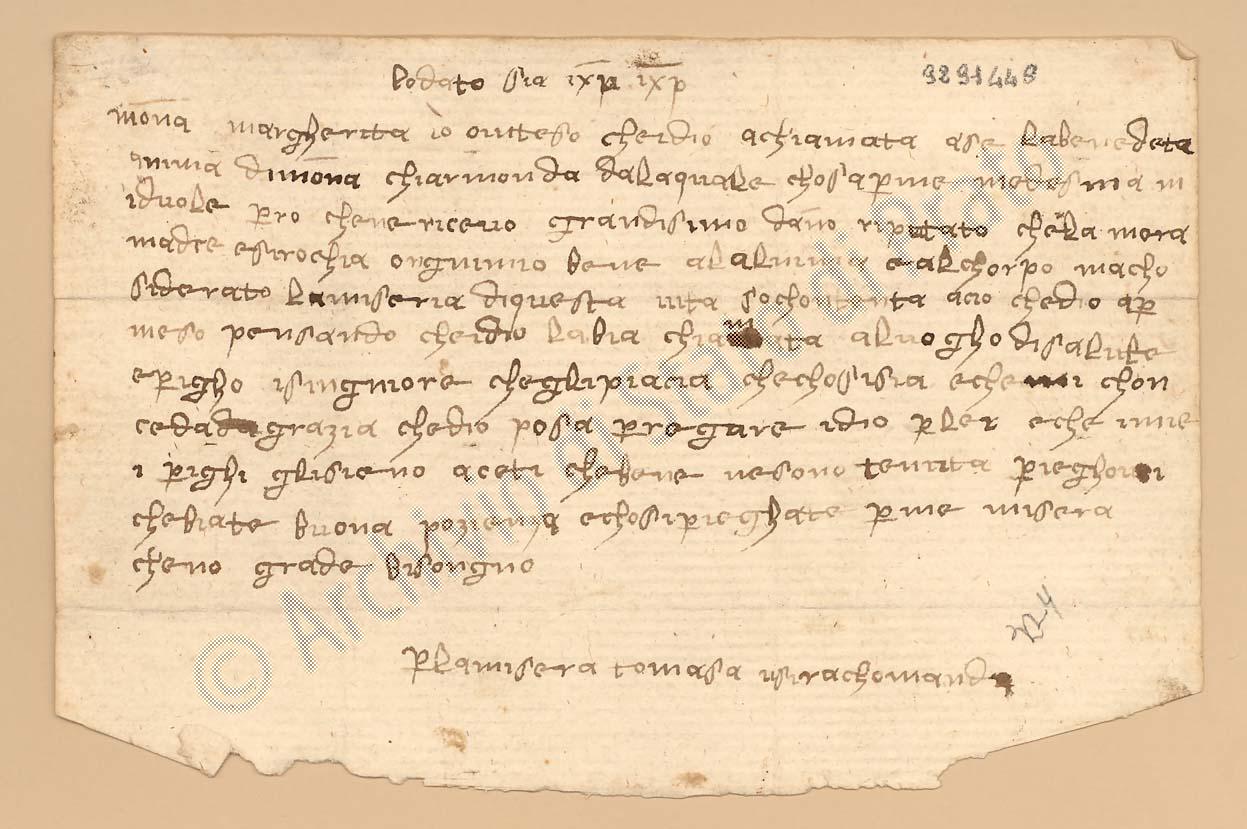 lodato sia ixpu ixp
9291449
mona margherita io onteso cheidio achiamata ase labenedeta
anima dimona chiarmonda dalaquale chosa perme medesima m
iduole perro chene ricevo grandisimo dano riputato chela mera
madre esirochia ongnunio bene alalnima e alchorpo macho
siderato lamiseria diquesta uita sochontenta acio chedio aper
meso pensando cheidio labia chiamata aluogho disalute
epigho isingniore cheglipiacia chechosisia eche mi chon
ceda grazia chedio posa perregare idio perlei eche
i pighi glisieno aceti chebene nesono tenuta pieghoui
chebiate buona pazienza echosipieghate perme misera
cheno grade bisongno
perlamisera tomasa usirachomanda
224
© Archivio di Stato di Prato